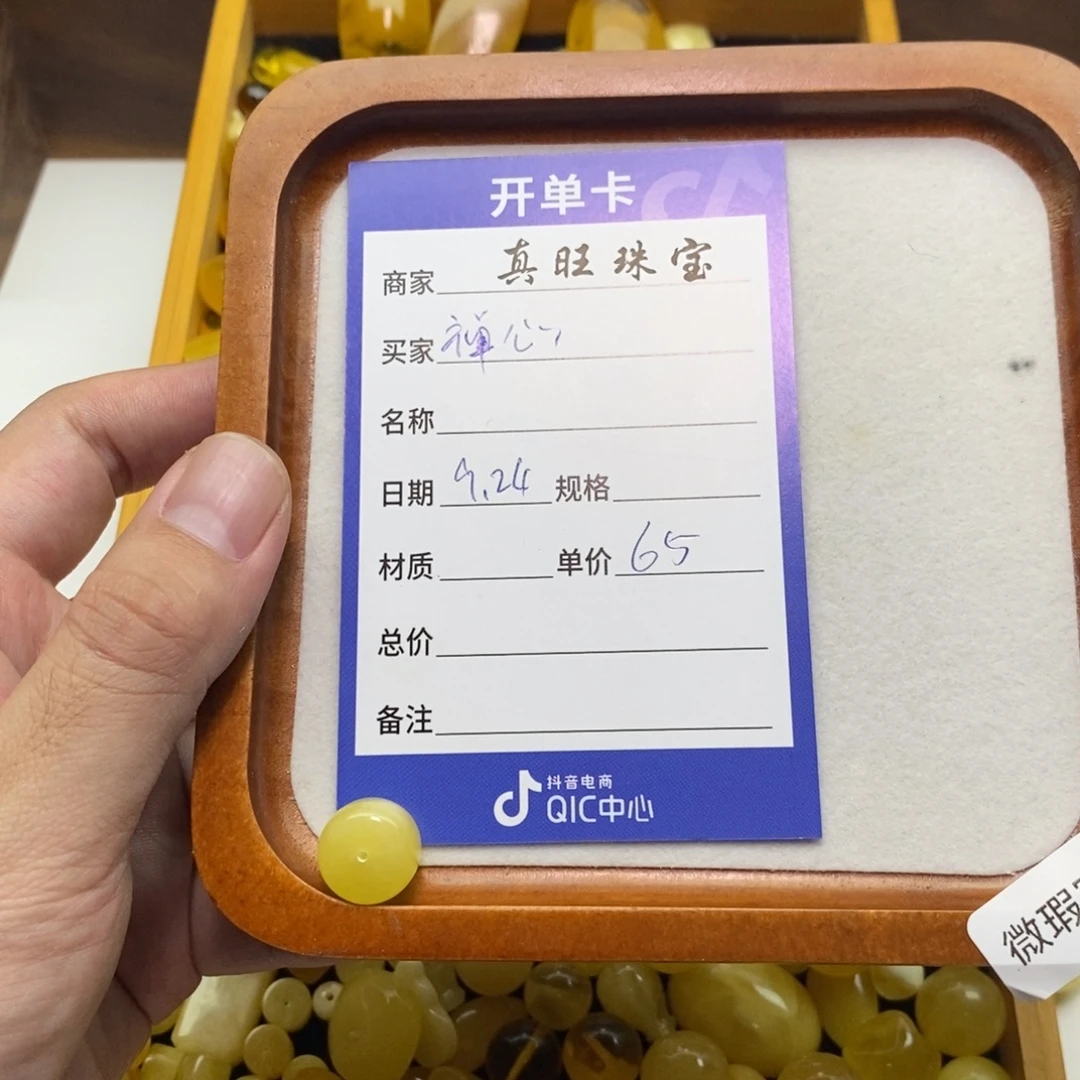 开单卡
商家 真旺珠宝
买家 禅心
名称
日期 9.24 规格
材质 单价 65
总价
备注
抖音电商
QIC中心
微瑕